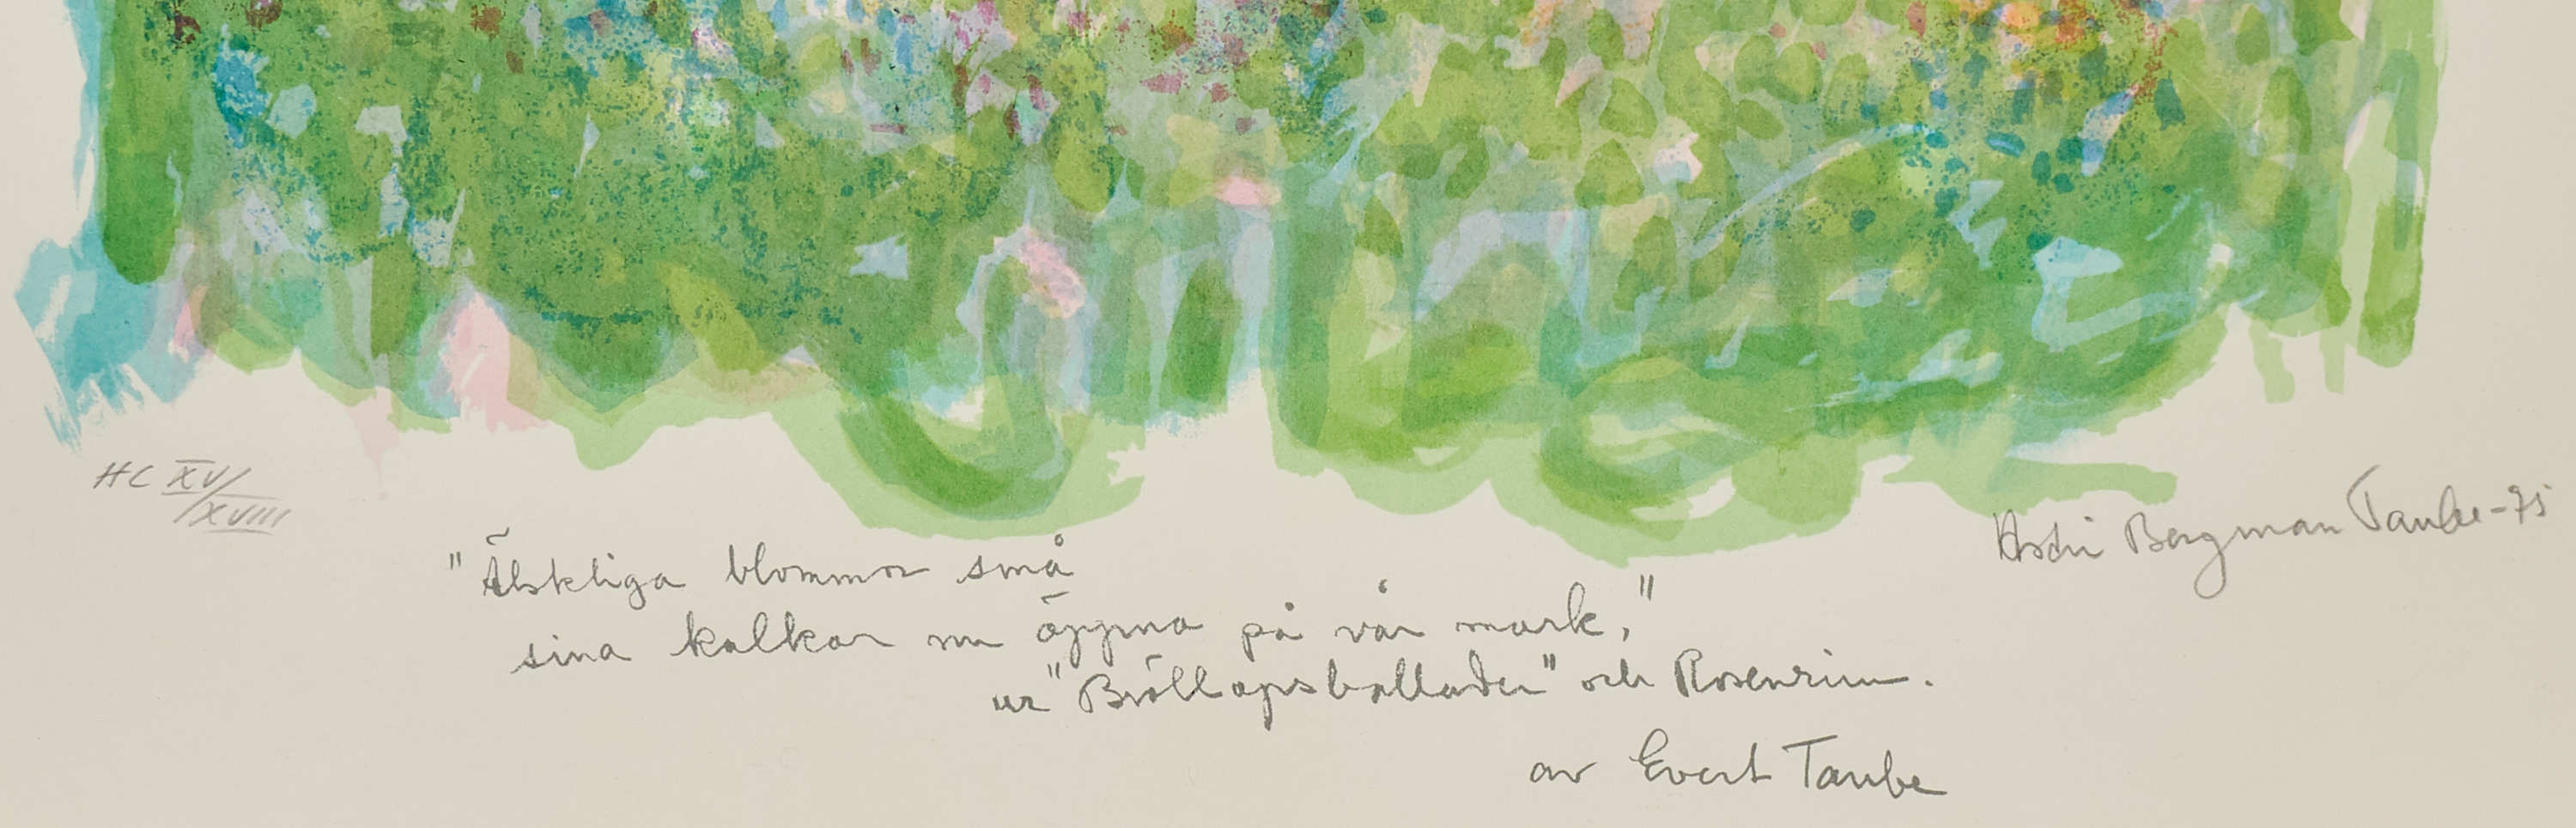 HC XV/XVIII
Astri Bergman Taube-75
"Älskliga blommor små
sina kalkar nu öppna på vår mark,"
ur "Bröllopsballader" och Rosenrim.
av Evert Taube